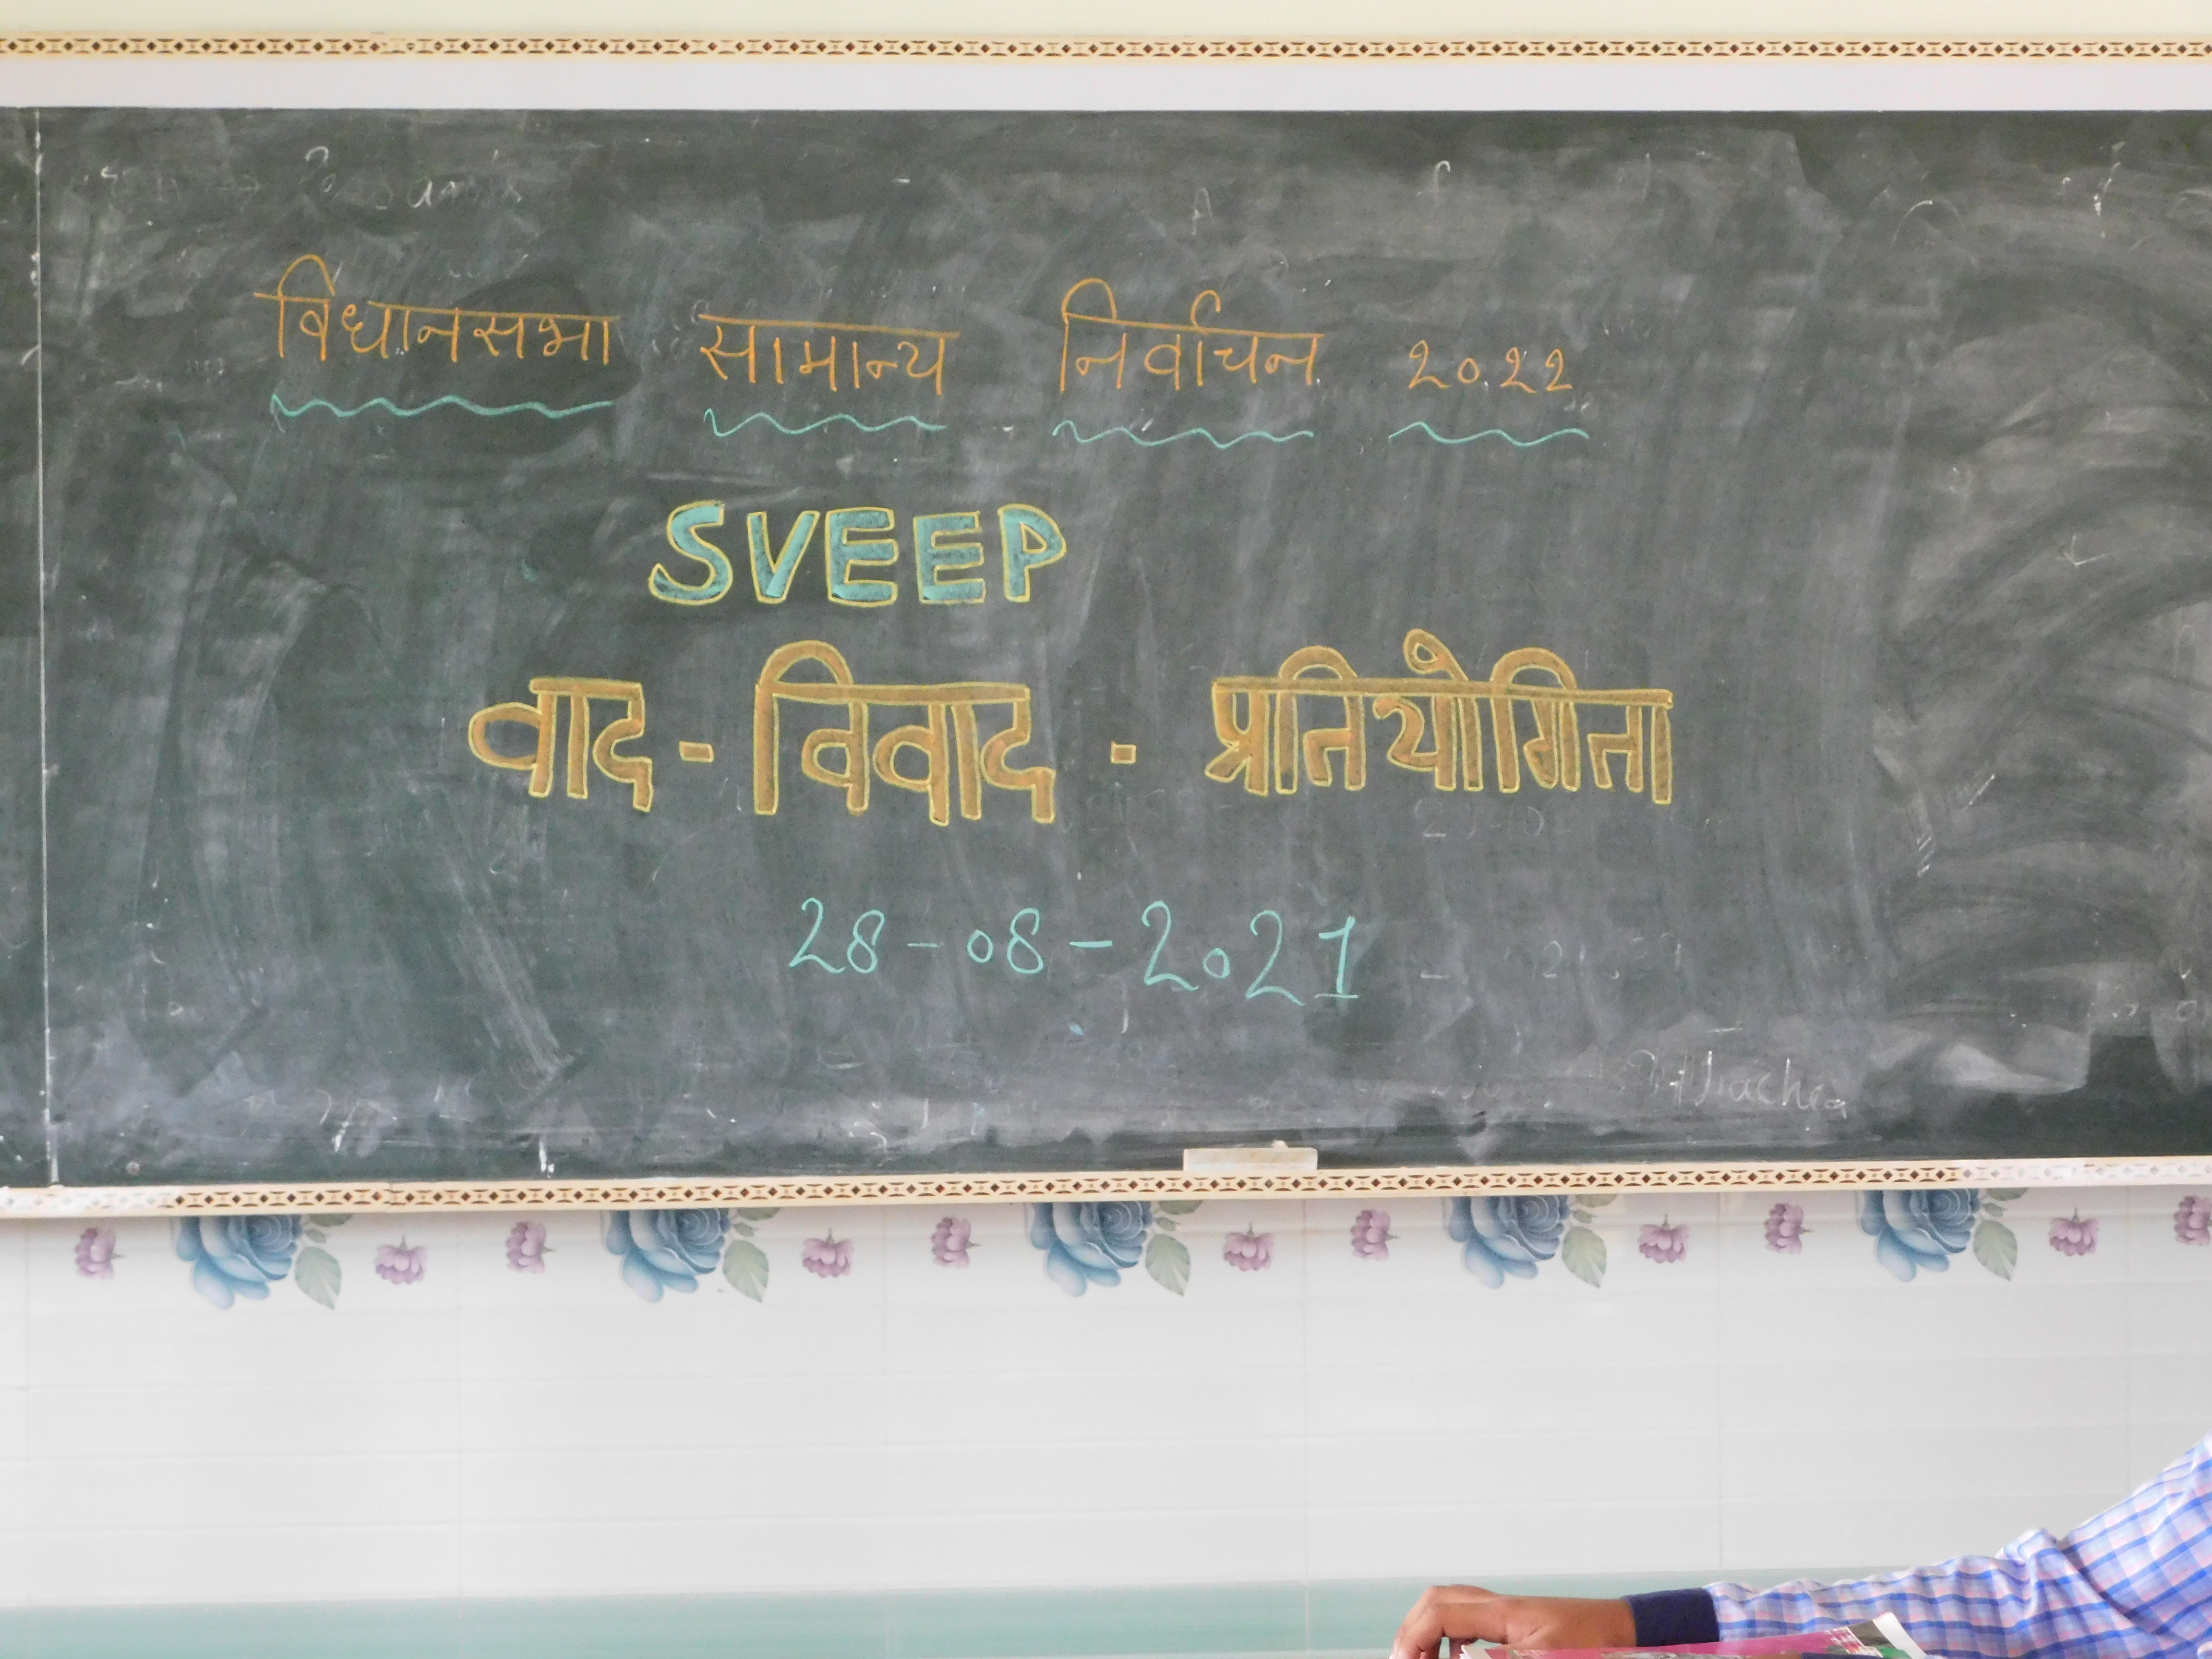 विधानसभा सामान्य निर्वाचन २०२२
SVEEP
वाद - विवाद - प्रतियोगिता
28-08-2021